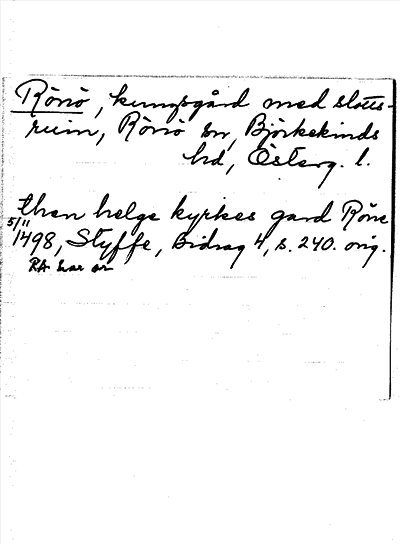 Rönö, kungsgård med slotts-
ruin, Rönö sn, Björkekinds
hd, Österg. l.
then helge kyrkes gard Röne
5/11 1498, Styffe, Bidrag 4, s. 240. orig.
RA